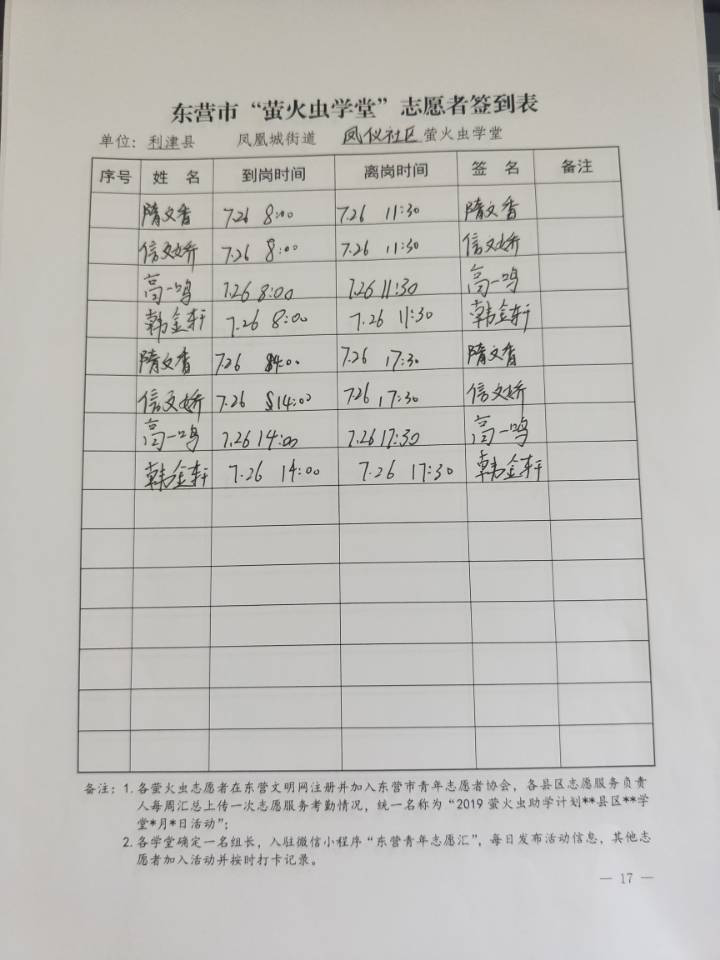 东营市“萤火虫学堂”志愿者签到表
单位：利津县 凤凰城街道 凤仪社区 萤火虫学堂
序号 姓 名 到岗时间 离岗时间 签 名 备注
隋文香 7.26 8:00 7.26 11:30 隋文香
信文娇 7.26 8:00 7.26 11:30 信文娇
高一鸣 7.26 8:00 7.26 11:30 高一鸣
韩金轩 7.26 8:00 7.26 11:30 韩金轩
隋文香 7.26 14:00 7.26 17:30 隋文香
信文娇 7.26 14:00 7.26 17:30 信文娇
高一鸣 7.26 14:00 7.26 17:30 高一鸣
韩金轩 7.26 14:00 7.26 17:30 韩金轩
备注：1. 各萤火虫志愿者在东营文明网注册并加入东营市青年志愿者协会，各县区志愿服务负责
人每周汇总上传一次志愿服务考勤情况，统一名称为“2019 萤火虫助学计划**县区**学
堂*月*日活动”；
2. 各学堂确定一名组长，入驻微信小程序“东营青年志愿汇”，每日发布活动信息，其他志
愿者加入活动并按时打卡记录。
— 17 —